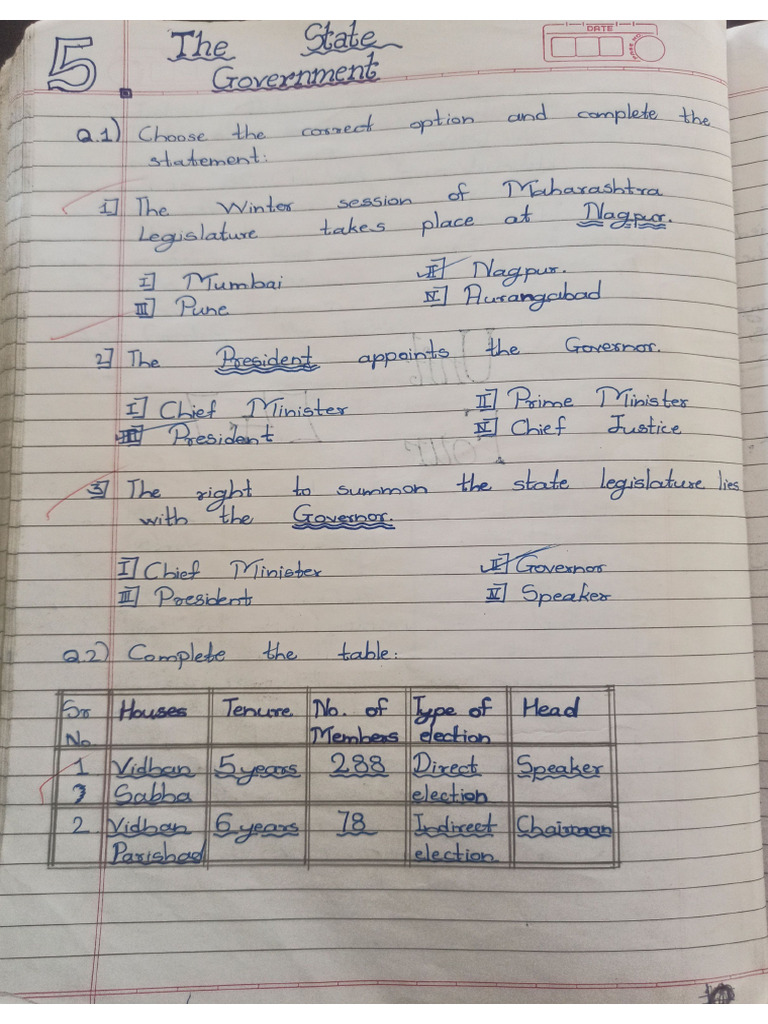 5. The State
Government
DATE
PAGE NO.
Q.1) Choose the correct option and complete the
statement:
1] The Winter session of Maharashtra
Legislature takes place at Nagpur.
I] Mumbai II] Nagpur.
III] Pune IV] Aurangabad
2] The President appoints the Governor.
I] Chief Minister II] Prime Minister
III] President IV] Chief Justice
3] The right to summon the state legislature lies
with the Governor.
I] Chief Minister II] Governor
III] President IV] Speaker
Q.2) Complete the table:
Sr Houses Tenure No. of Type of Head
No. Members election
1 Vidhan 5 years 288 Direct Speaker
Sabha election
2 Vidhan 6 years 78 Indirect Chairman
Parishad election